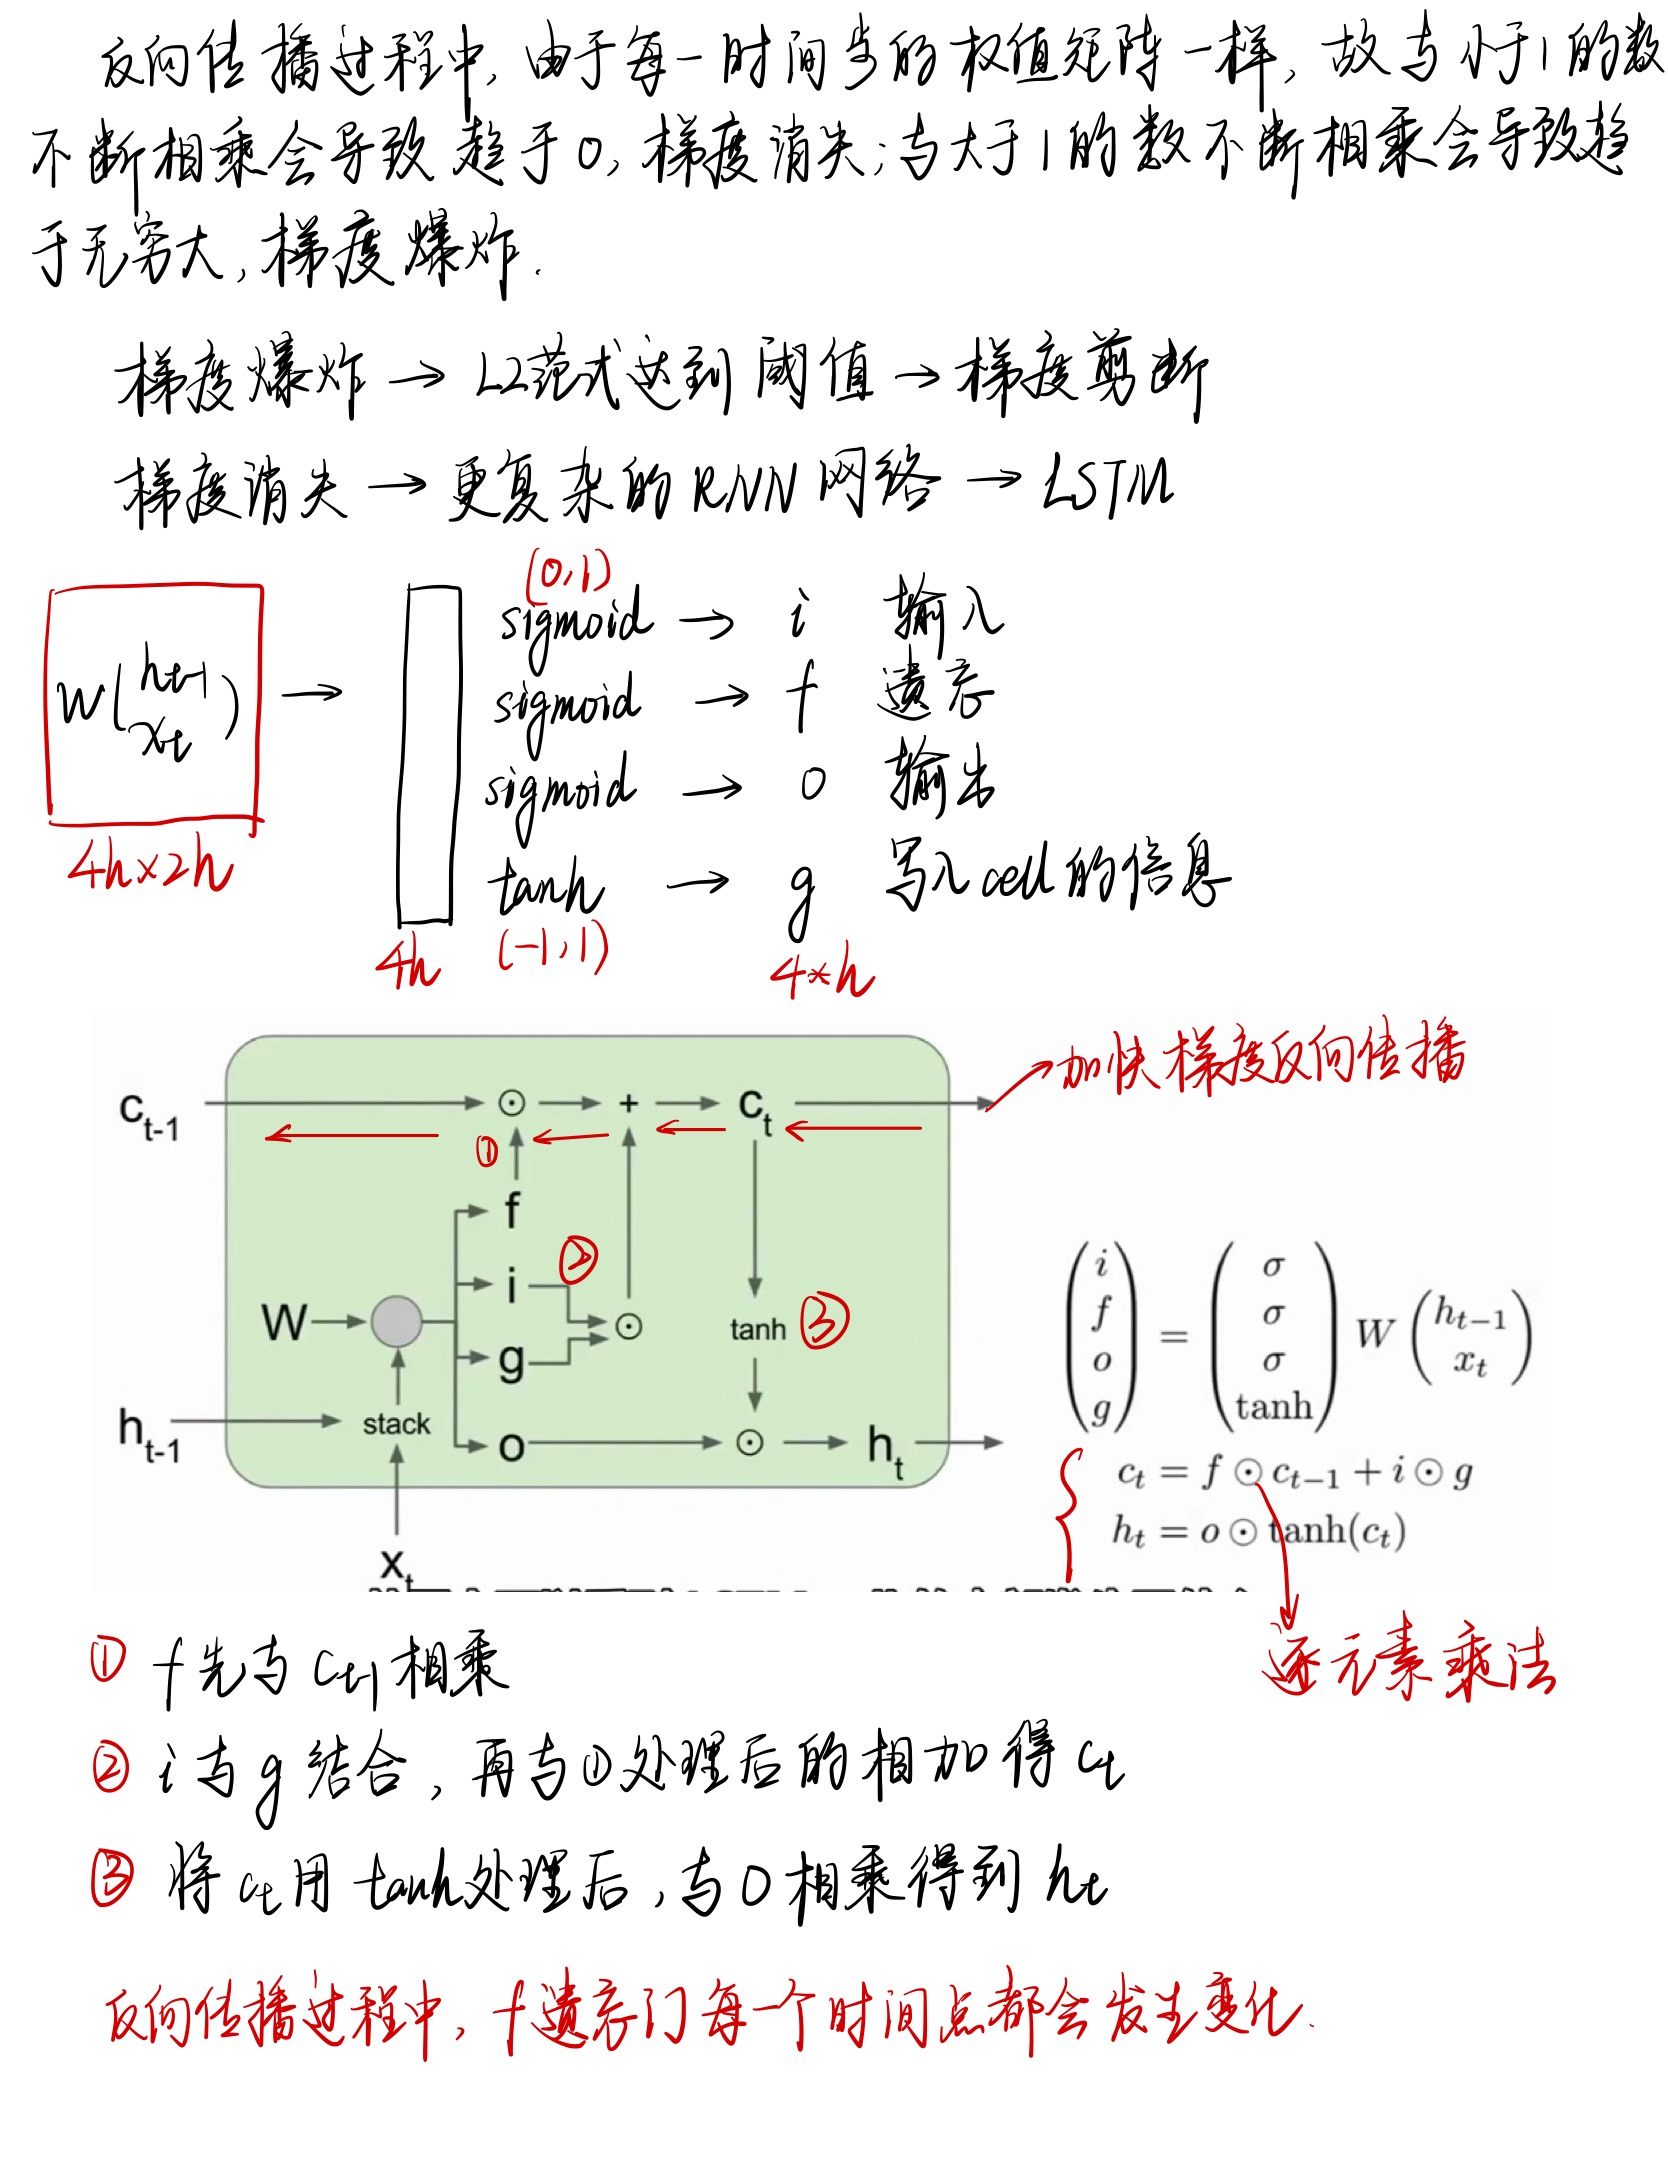 反向传播过程中,由于每一时间步的权值矩阵一样,故与小于1的数
不断相乘会导致趋于0,梯度消失;与大于1的数不断相乘会导致趋
于无穷大,梯度爆炸.
梯度爆炸→L2范式达到阈值→梯度剪断
梯度消失→更复杂的RNN网络→LSTM
(0,1)
sigmoid → i 输入
W(h_{t-1} x_t) →
sigmoid → f 遗忘
sigmoid → o 输出
4h×2h
tanh → g 写入cell的信息
4h (-1,1) 4*h
加快梯度反向传播
c_{t-1} ⊙ + c_t
①
f
②
i
W ⊙ tanh ③
g
h_{t-1} stack
o ⊙ h_t
x_t
(i f o g) = (σ σ σ tanh) W (h_{t-1} x_t)
c_t = f ⊙ c_{t-1} + i ⊙ g
h_t = o ⊙ tanh(c_t)
逐元素乘法
① f先与c_{t-1}相乘
② i与g结合,再与①处理后的相加得c_t
③ 将c_t用tanh处理后,与o相乘得到h_t
反向传播过程中,f遗忘门每一个时间点都会发生变化.